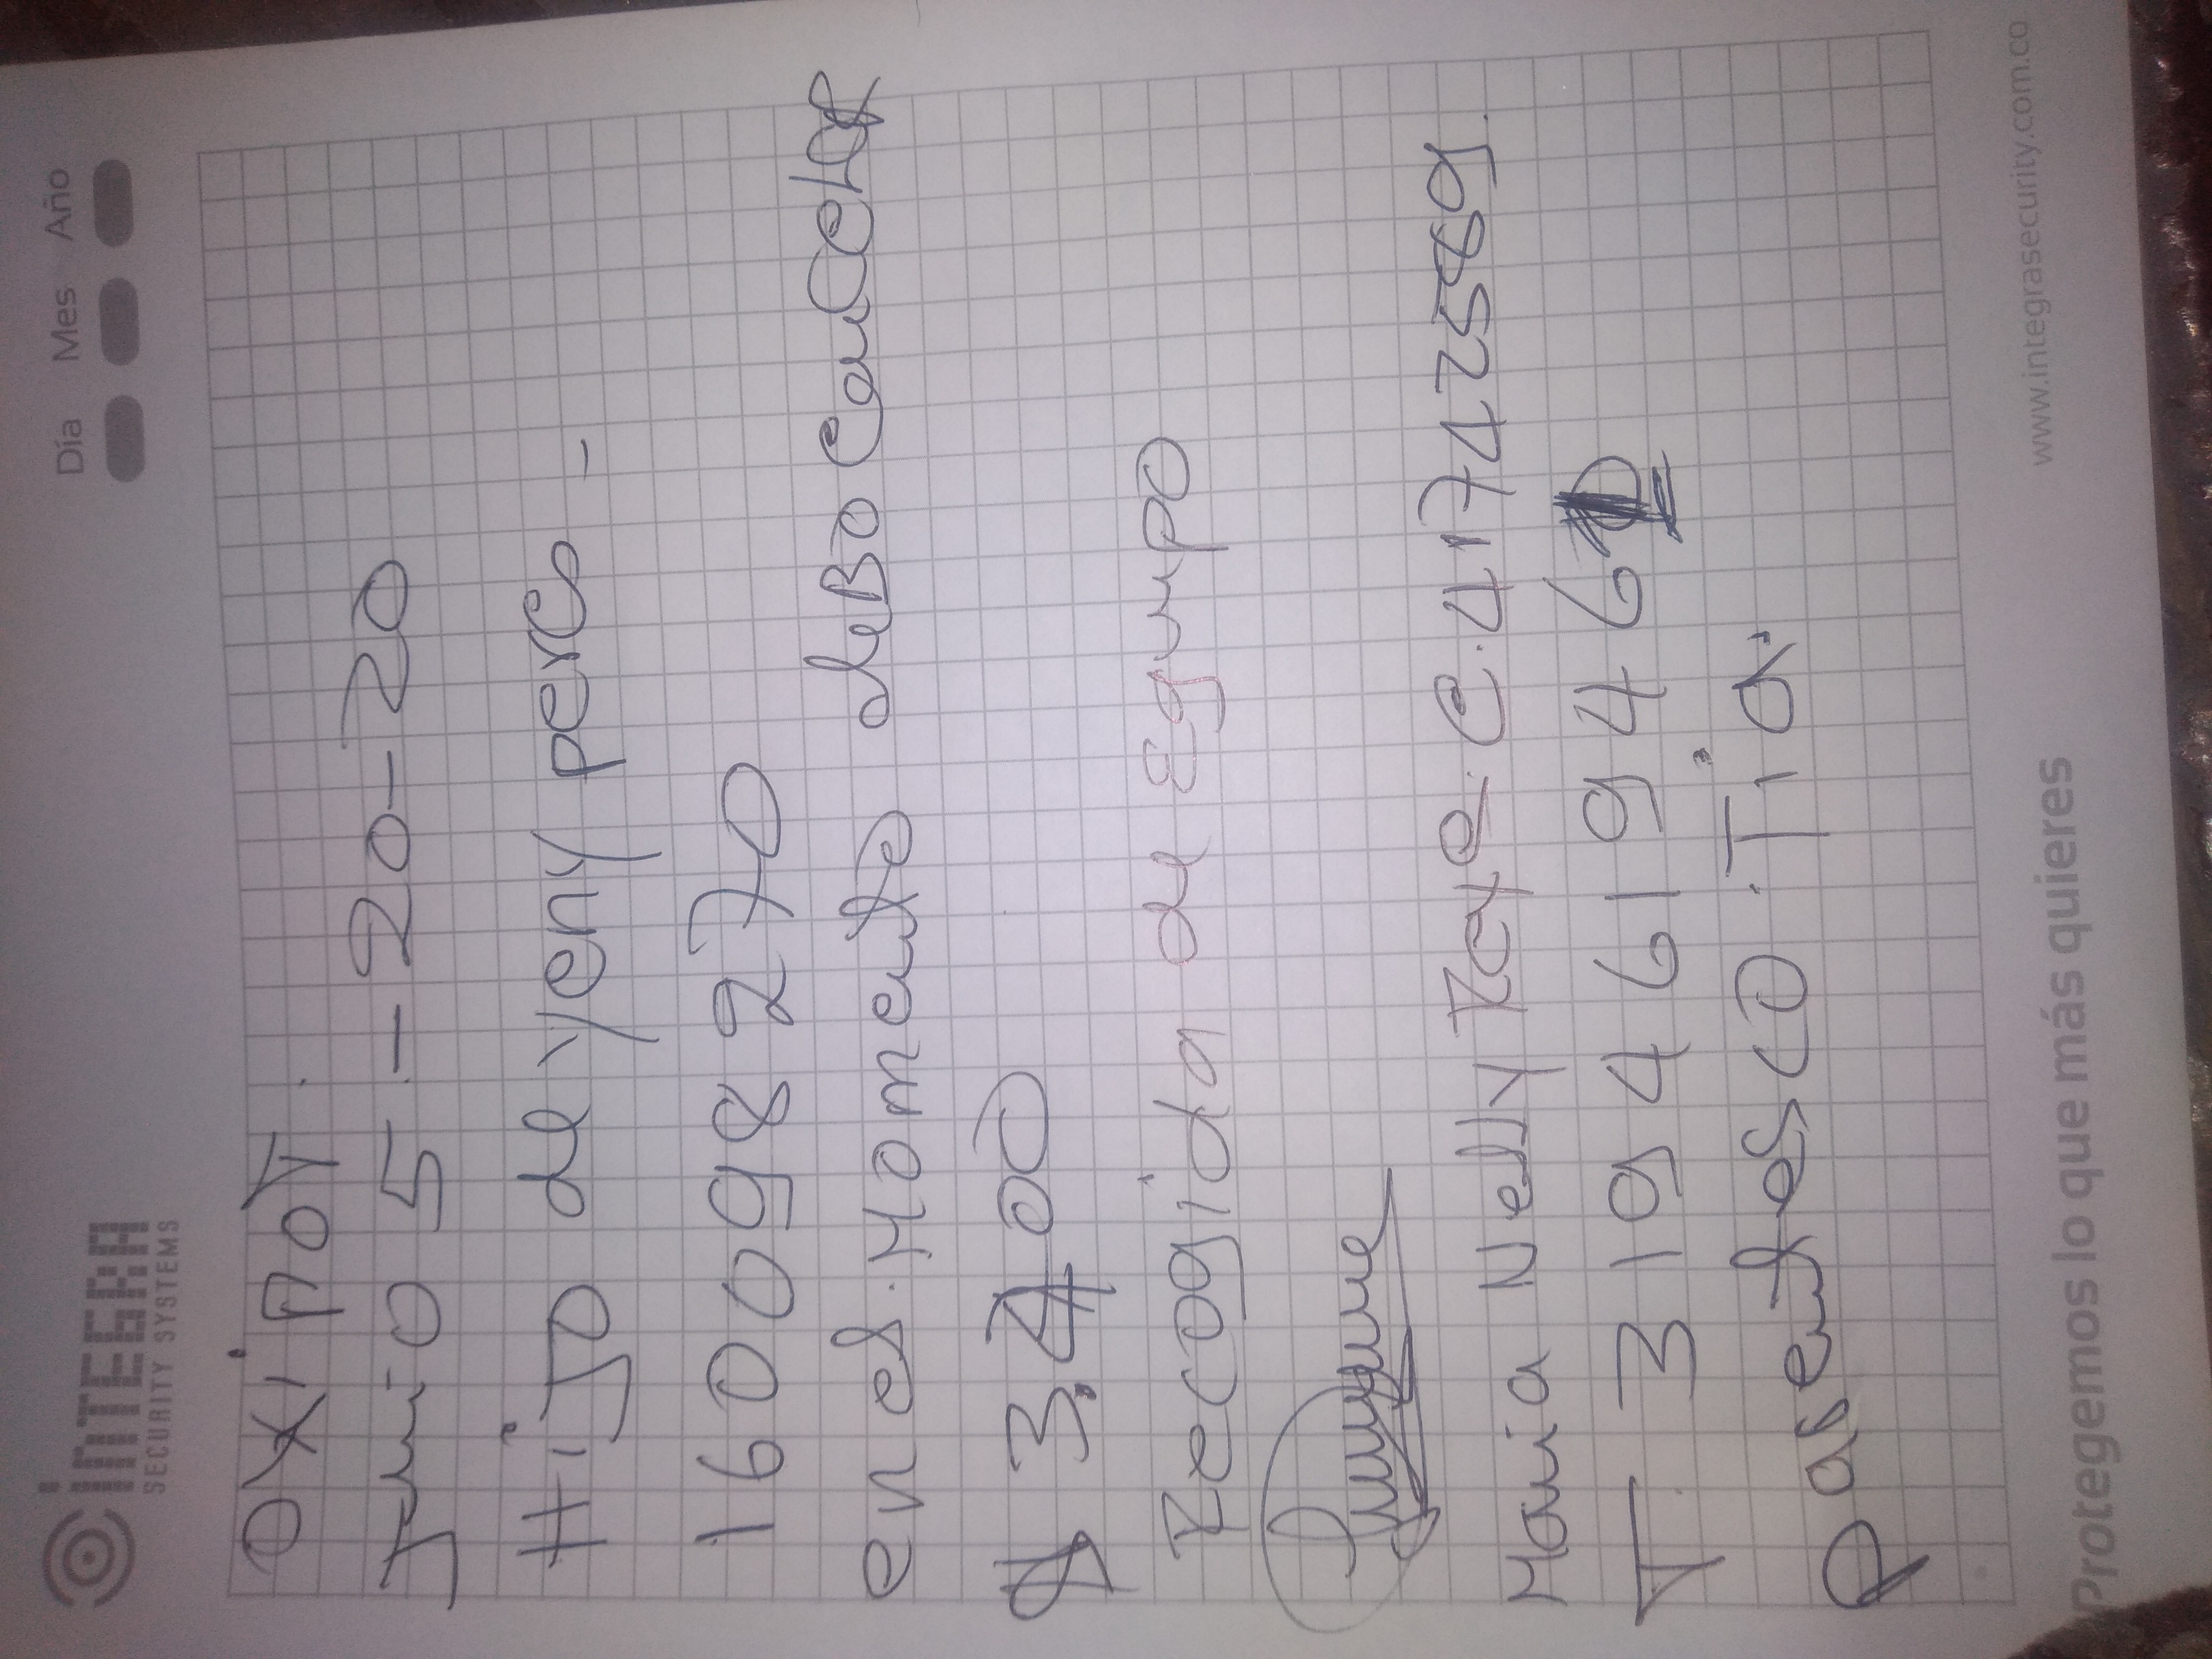 INTEGRA
SECURITY SYSTEMS
Día Mes Año
OXINOT.
Junio 5 - 20-20
Hijo de yeny perc -
160098270
en el. Momento debo Cancelar
$ 3.400
Recogida de Equipo
Maria Nelly Zaya. C. 41742589.
T. 3194619461
Parentesco. Tia.
Protegemos lo que más quieres
www.integrasecurity.com.co